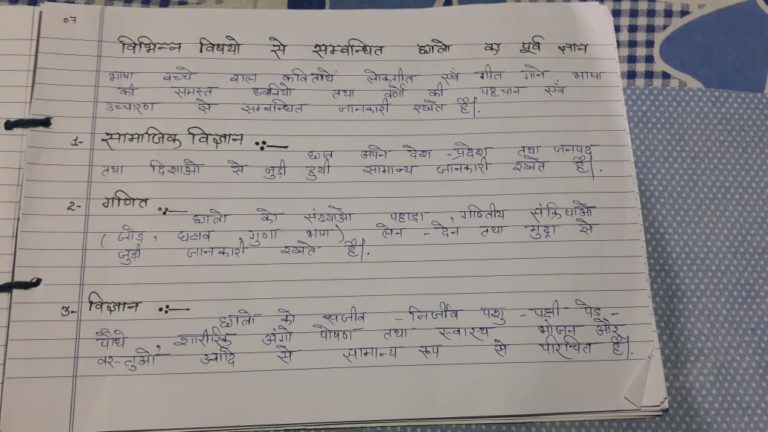 07
विभिन्न विषयो से सम्बन्धित छात्रो का पूर्व ज्ञान
भाषा बच्चे बाल कवितायें लोकगीत एवं गीत गाने भाषा
की समस्त ध्वनियो तथा वर्णो की पहचान एवं
उच्चारण से सम्बन्धित जानकारी रखते हैं।.
1- सामाजिक विज्ञान :-
छात्र अपने देश - प्रदेश तथा जनपद
तथा दिशाओ से जुड़ी हुयी सामान्य जानकारी रखते हैं।.
2- गणित :-
छात्रो को संख्याओ पहाड़ा , गणितीय संक्रियाओ
( जोड़ , घटाव , गुणा भाग ) लेन - देन तथा मुद्रा से
जुड़ी जानकारी रखते हैं।.
3- विज्ञान :-
छात्रो को सजीव - निर्जीव पशु - पक्षी पेड़ -
पौधे , शारीरिक अंगो पोषण तथा स्वास्थ भोजन और
वस्तुओ आदि से सामान्य रूप से परिचित हैं।.